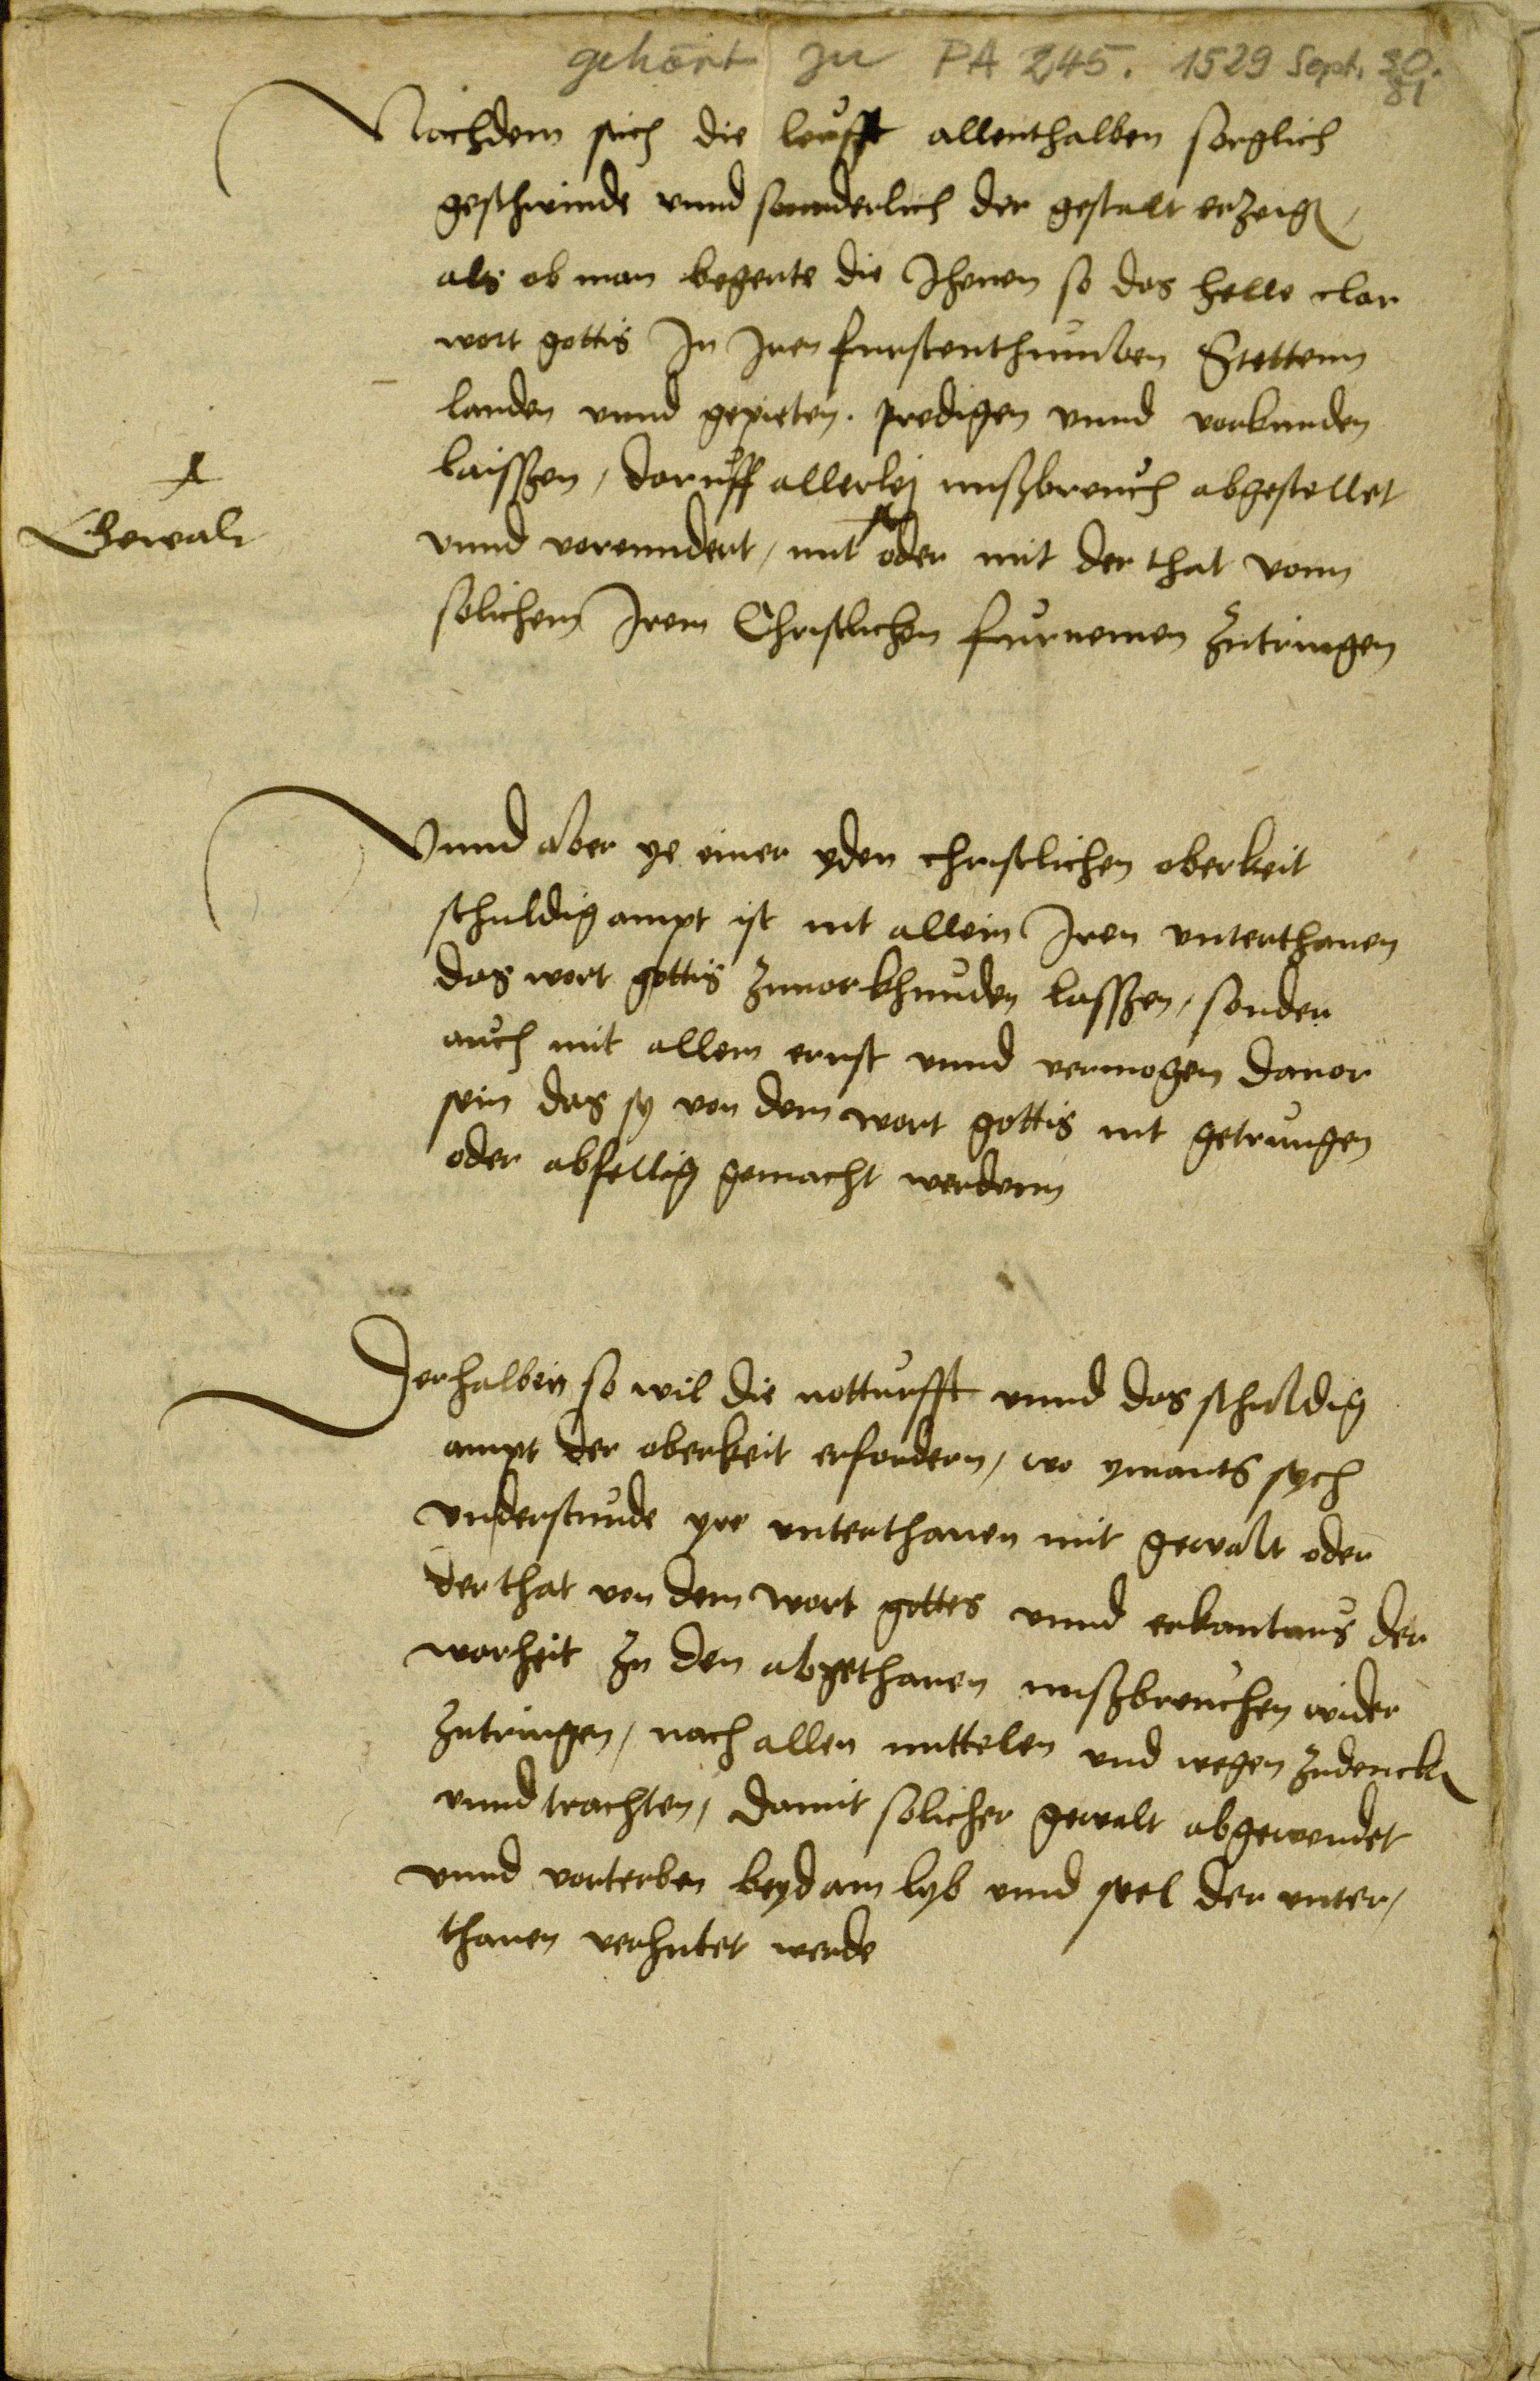 gehört zu PA 245. 1529 Sept. 30.
Nachdem sich die leufft allenthalben sorglich
geschwinde vnnd sonnderlich der gestallt erzeigen,
als ob man begerte die Jhenen so das helle clar
wort gottis In Iren furstenthumben Stettenn
landen vnnd gepieten. predigen vnnd vorkunden
laissen, daruff allerlej missbreuch abgestellet
Gewalt
vnnd verenndert, mit oder mit der that vonn
solichem Irem Christlichen furnemen zutringen
Vnnd aber ye einer yden christlichen oberkeit
schuldig ampt ist nit allein Iren vnterthanen
das wort gottis zuuorkhunden lasszen, sonder
auch mit allem ernst vnnd vermogen dauor
sein das sy von dem wort gottis nit getrungen
oder abfellig gemacht werdenn
Derhalben so wil die notturfft vnnd das schuldig
ampt der oberkeit erfordern, wo ymants sych
vnderstunde yre vnterthanen mit gewalt oder
der that von dem wort gottes vnnd erkantnus der
warheit zu den abgethanen missbreuchen wider
zutringen, nach allen mittelen vnd wegen zudencken
vnnd trachten, damit solicher gewalt abgewendet
vnnd vorterben beyd am lyb vnnd seel der vnter,
thanen verhutet werde